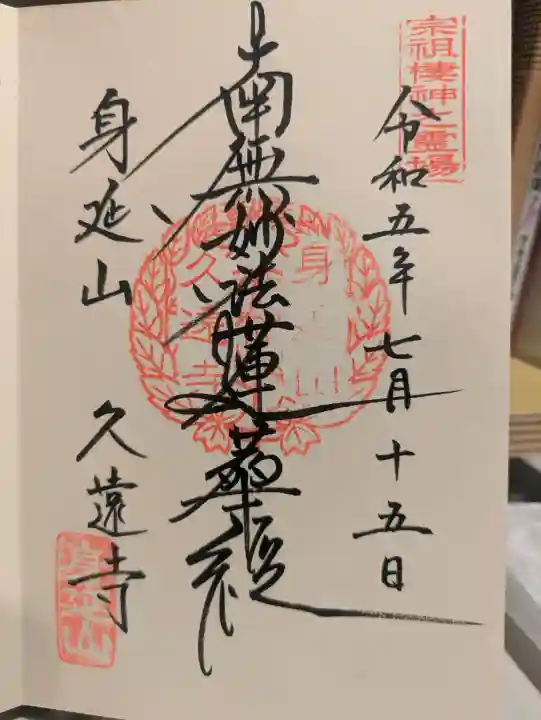 宗祖棲神之霊場
令和五年七月十五日
南無妙法蓮華経
身延山
久遠寺
身延山
久遠寺